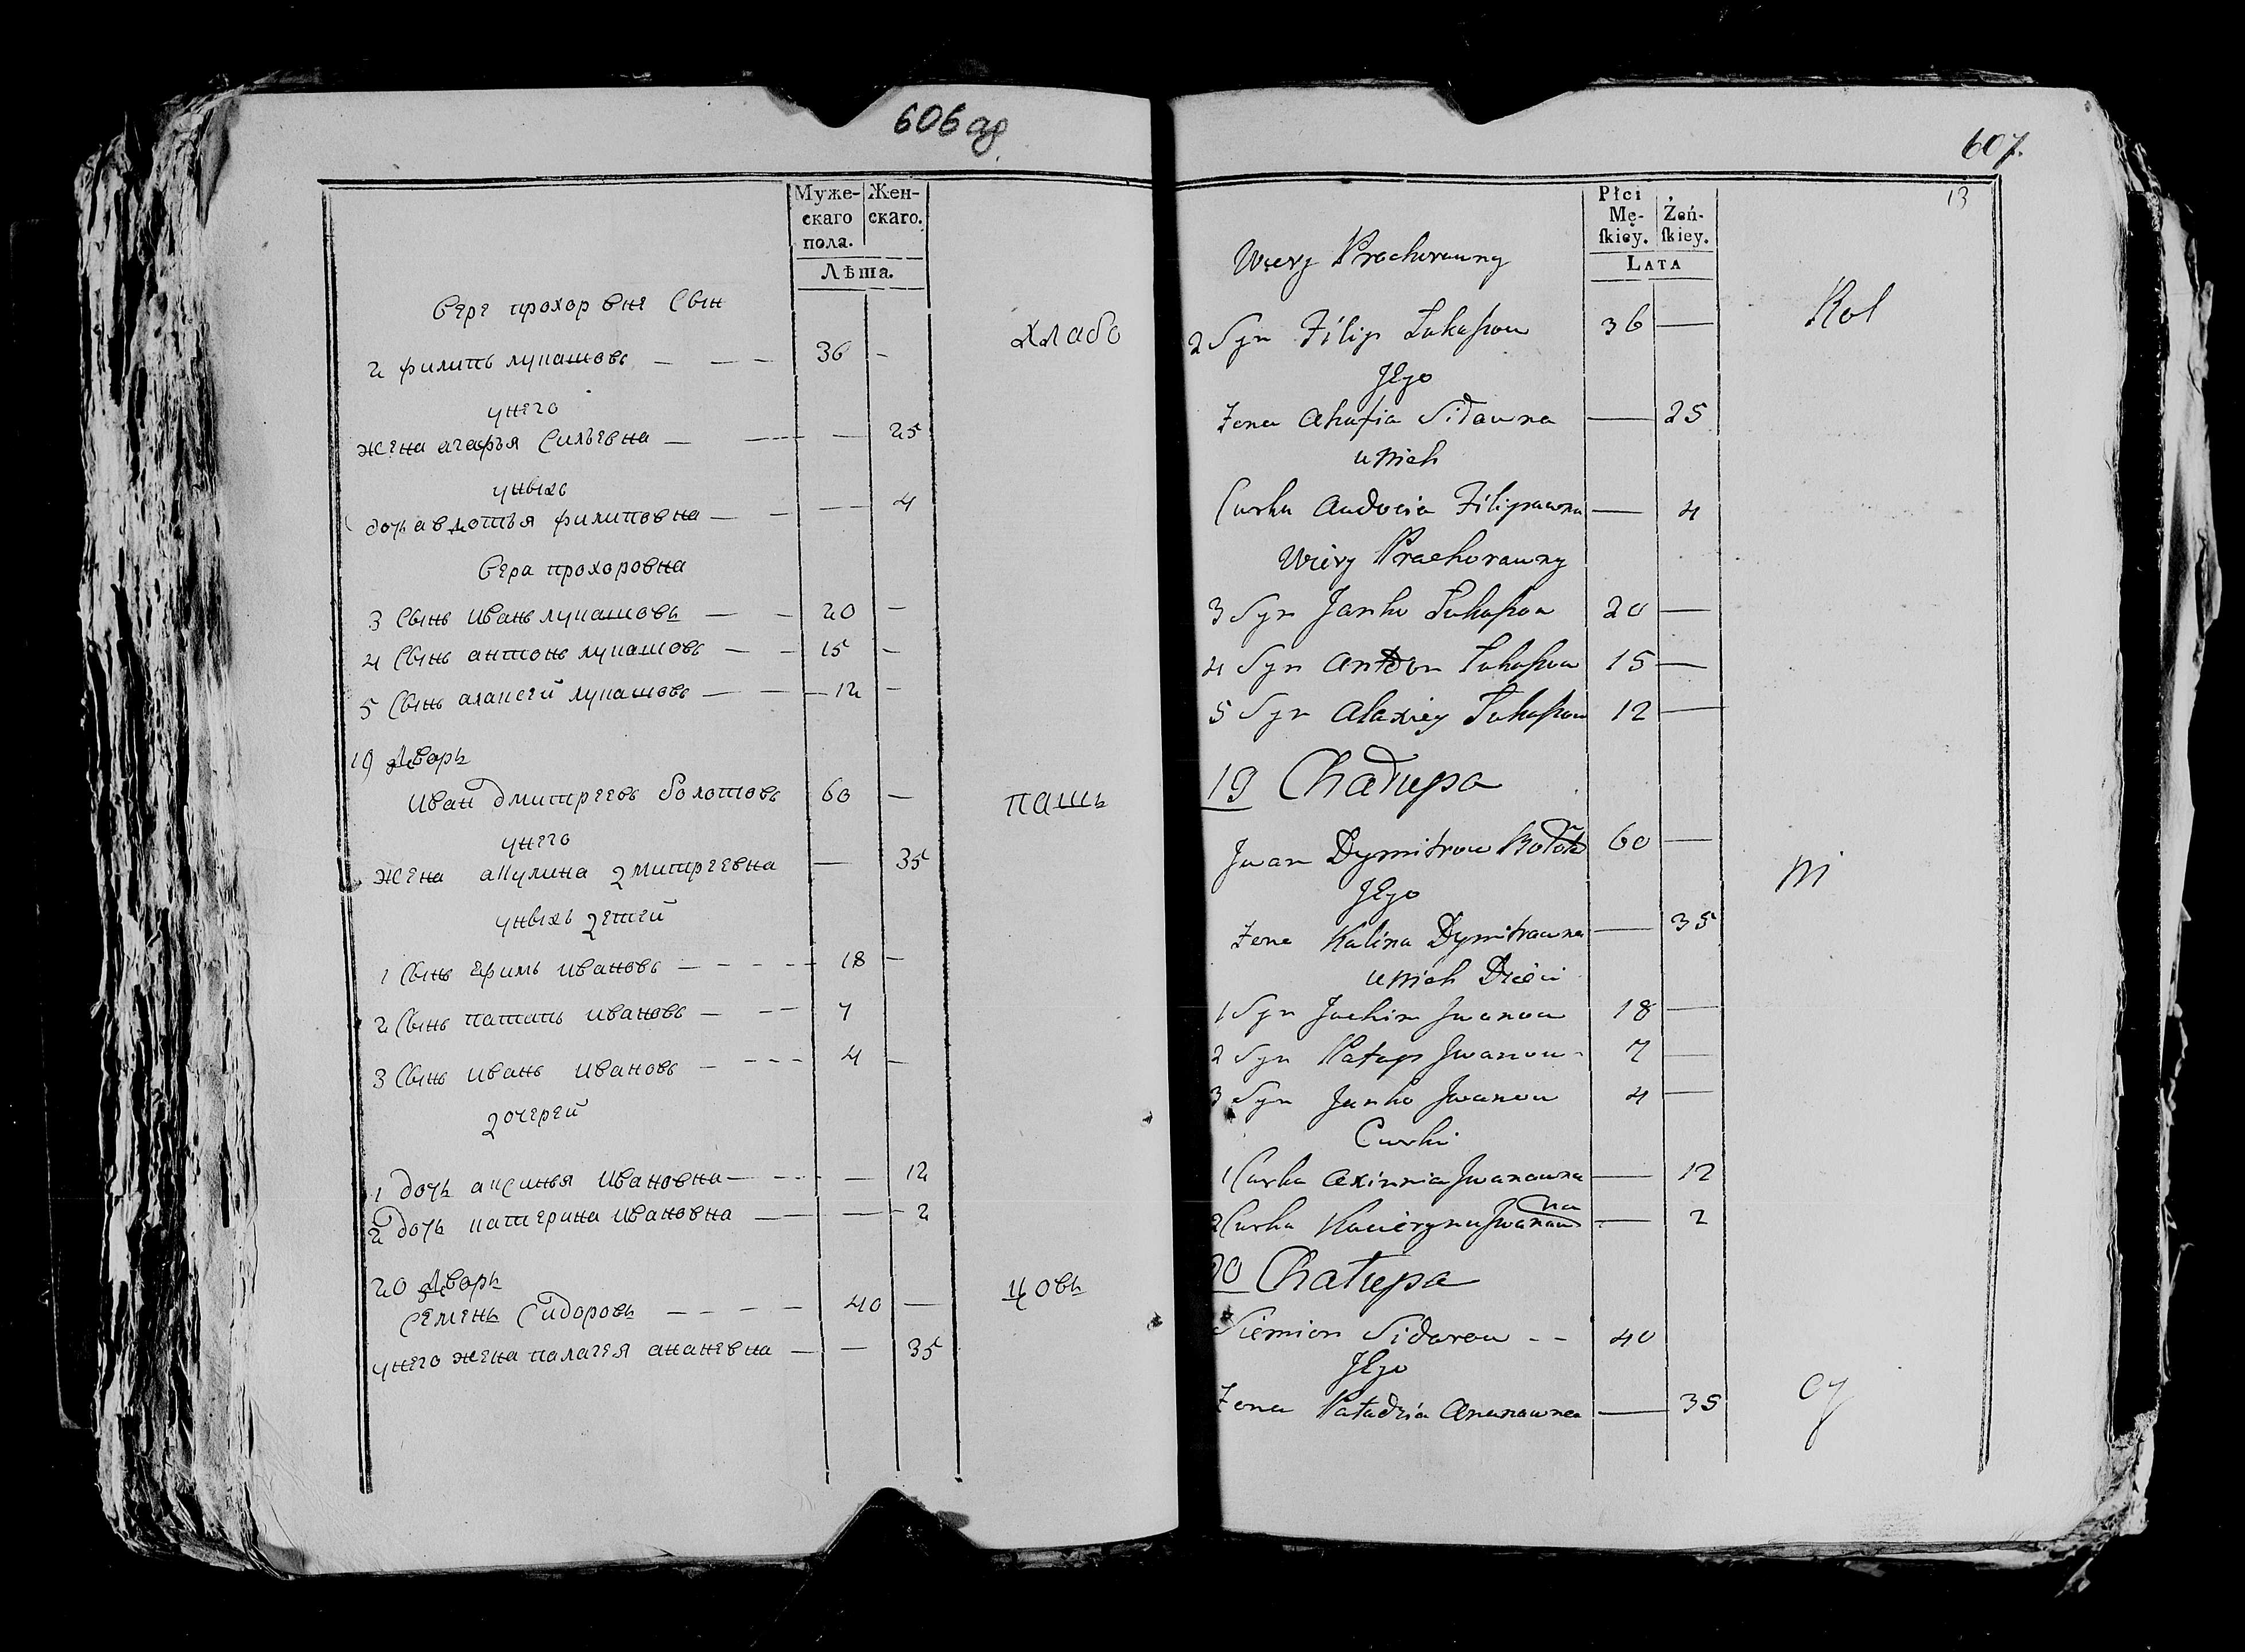 606 об
Муже-
скаго
пола.
Жен-
скаго.
Лѣта.
вере прохор вне Сын
2 филипъ лукашовъ — — — 36 —
унего
жена агафъя Силъевна — — — 25
унихъ
дочь авдотъя филиповна — — — 4
вера прохоровна
3 Сынъ иванъ лукашовъ — — 20 —
4 Сынъ антонъ лукашовъ — — 15 —
5 Сынъ алаксей лукашовъ — — 12 —
19 дворъ
иван дмитреевъ болотовъ 60 —
унего
жена акулина дмитреевна — 35
унихъ детей
1 Сынъ ефимъ ивановъ — — — 18 —
2 Сынъ патапъ ивановъ — — — 7
3 Сынъ иванъ ивановъ — — — 4 —
дочерей
1 дочь аксинъя ивановна — — — 12
2 дочь катерина ивановна — — — 2
20 дворъ
Семенъ Сидоровъ — — — — 40 —
унего жена палагея ананевна — — 35
хлабо
пашъ
цовъ
607.
13
Płci
Mę-
ſkiey.
Żeń-
ſkiey.
LATA
Wiery Prachorauny
2 Syn Filip Łukaſzow 36 —
Jego
Żona Ahafia Sidawna — 25
u Nich
Curka Audocia Filipawna — 4
Wiery Prachorauny
3 Syn Janko Łukaſzow 20 —
4 Syn Anton Łukaſzow 15 —
5 Syn Alaxiey Łukaſzow 12 —
19 Chałupa
Jwan Dymitrow Bołotow 60 —
Jego
Żona Kulina Dymitrawna — 35
u Nich Dzieci
1 Syn Jachim Jwanow 18 —
2 Syn Patap Jwanow - 7 —
3 Syn Janko Jwanow 4 —
Curki
1 Curka Axinnia Jwanawna — 12
2 Curka Kacieryna Jwanawna — 2
20 Chałupa
Siemion Sidorow - - 40
Jego
Żona Paładzia Ananawna — 35
Rol
ni
cy